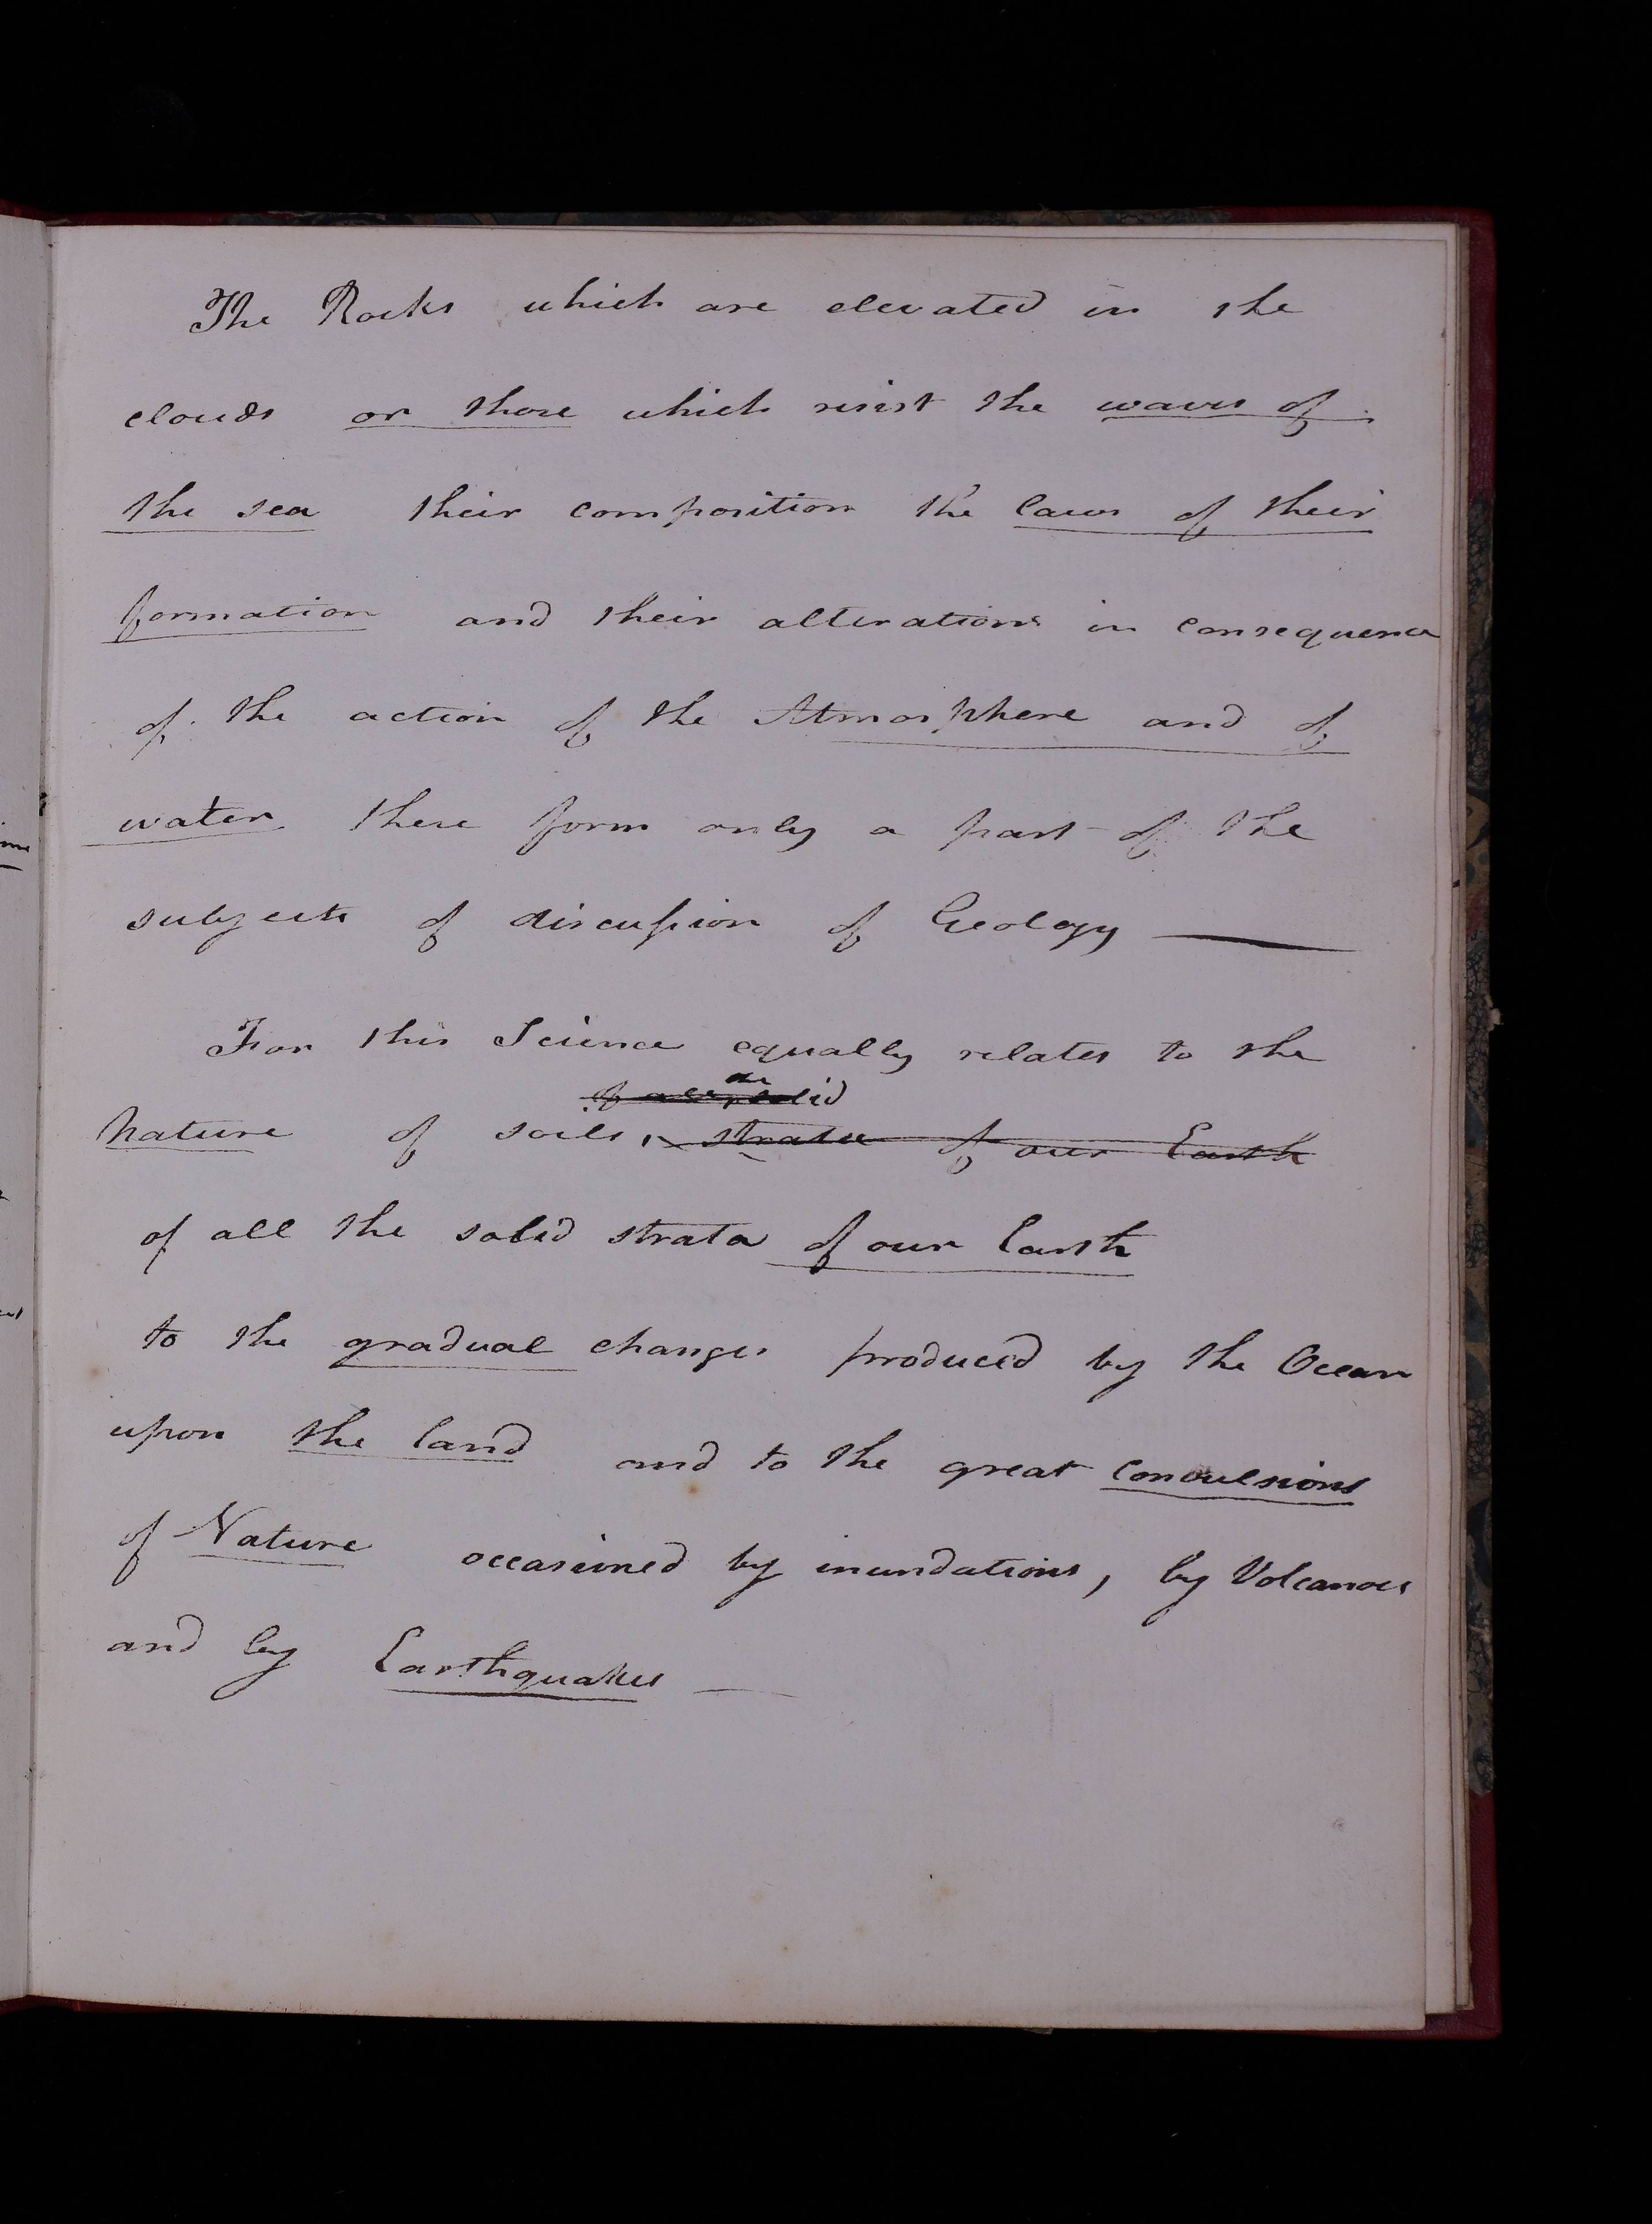 The Rocks which are elevated in the
clouds or those which resist the waves of
the sea their composition the laws of their
formation and their alterations in consequence
of the action of the Atmosphere and of
water these form only a part of the
subjects of discussion of Geology —
For this Science equally relates to the
of all the solid
nature of soils, strata of our Earth
of all the solid strata of our Earth
to the gradual changes produced by the Ocean
upon the land and to the great convulsions
of Nature occasioned by inundations, by Volcanoes
and by Earthquakes —